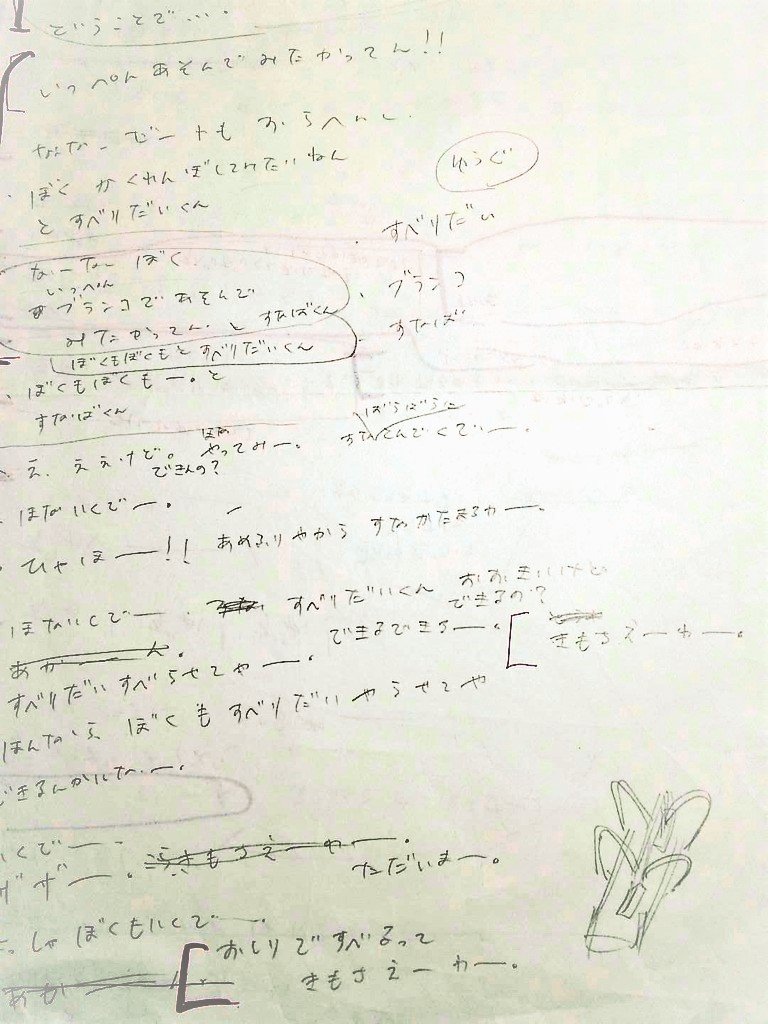 ということで・・・・
いっぺんあそんでみたかってん!!
ぼく かくれんぼしてみたいねん
と すべりだいくん
ゆうぐ
・すべりだい
・ブランコ
・すなば
なーなー ぼく
いっぺん
ブランコであそんで
みたかってん。と すなばくん
ぼくもぼくもと すべりだいくん
・ぼくもぼくもー。と
すなばくん
え、ええけど。ほな やってみー。
できんの?
ばらばらに
すなとんでくでー。
・ほないくでー。
・ひゃほー!! あめふりやから すなかたまるわー。
ほないくでー。 すべりだいくん おおきいけど
できるの?
できるできるー。
きもちえーわー。
あかーん。
すべりだいすべらせてやー。
ほんなら ぼくも すべりだい やらせてや
できるんかいなー。
くでー
ザザー。 きもちえーわー。
ただいまー。
しゃ ぼくもいくでー。
おしりですべるって
きもちえーわー。
あかーん。